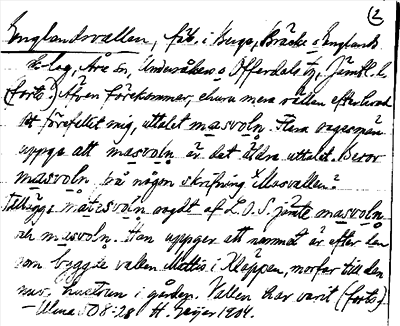 (2
Englandsvallen, fäb. i Berge, Bräcke o Englands
k-lag, Åre sn, Undersåkers o Offerdals tg, Jämtl. l.
(forts.) Äfven förekommer, ehuru mera sällan efter hvad
det förefallit mig, uttalet masvoln. Flera sagesmän
uppge att masvoln är det äldre uttalet. Beror
masvoln på någon skrifning *Masvallen?
Tillägg: matesvoln sagdt af L.O.S. jämte masvoln
och masvoln. Han uppger att namnet är efter den
som byggte vallen Mattis i Kläppen, morfar till den
nuv. hustrun i gården. Vallen har varit (forts.)
– Ulma 508:28 H. Geijer 1904.